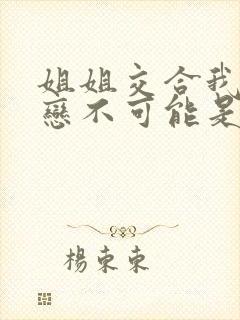 姐姐交合我
戀不可能是
楊東東